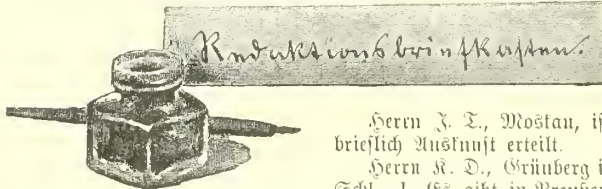 Redaktionsbriefkasten.
Herrn J. T., Moskau, is
brieflich Auskunft erteilt.
Herrn K. D., Grünberg i
Schl. 1. Es gibt in Preußen